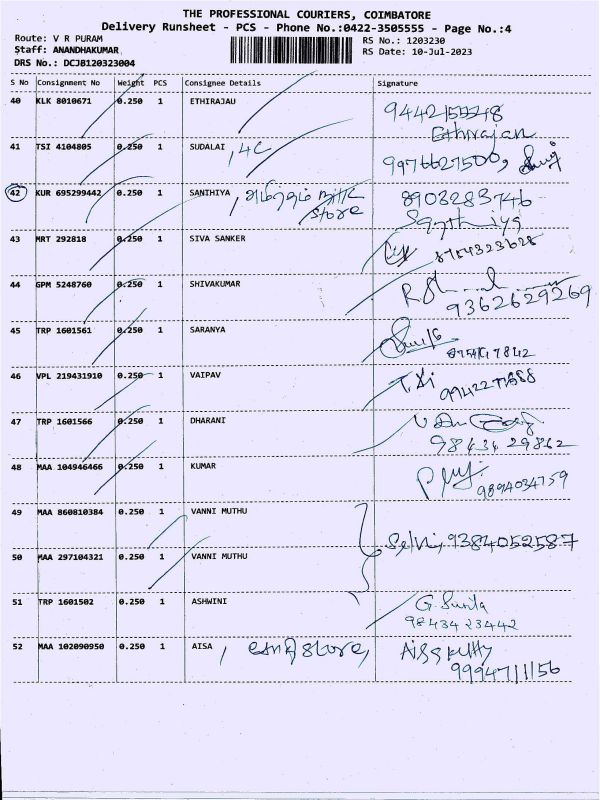 THE PROFESSIONAL COURIERS, COIMBATORE
Delivery Runsheet - PCS - Phone No.:0422-3505555 - Page No.:4
Route: V R PURAM
RS No.: 1203230
Staff: ANANDHAKUMAR
RS Date: 10-Jul-2023
DRS No.: DCJB120323004
S No Consignment No Weight PCS Consignee Details Signature
40 KLK 8010671 0.250 1 ETHIRAJAU
Ethirajan
41 TSI 4104805 0.250 1 SUDALAI , 4C
9976627500,
42 KUR 695299442 0.250 1 SANIHIYA , milk 8903283746
store
43 MRT 292818 0.250 1 SIVA SANKER 8754323628
44 GPM 5248760 0.250 1 SHIVAKUMAR
9362629269
45 TRP 1601561 0.250 1 SARANYA
46 VPL 219431910 0.250 1 VAIPAV
47 TRP 1601566 0.250 1 DHARANI
9843429862
48 MAA 104946466 0.250 1 KUMAR
9894034759
49 MAA 860810384 0.250 1 VANNI MUTHU
Selvi, 9384052587
50 MAA 297104321 0.250 1 VANNI MUTHU
51 TRP 1601502 0.250 1 ASHWINI G. Sunita
9843423442
52 MAA 102090950 0.250 1 AISA , store, Aisskutty
9994711156